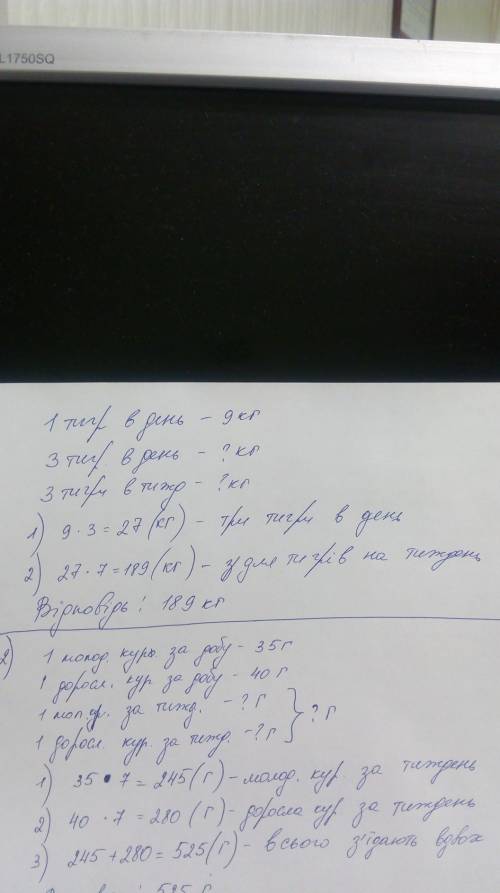 L1750SQ
1 тигр в день – 9 кг
3 тигр. в день – ? кг
3 тигри в тижд – ? кг
1) 9 · 3 = 27 (кг) – три тигри в день
2) 27 · 7 = 189 (кг) – для тигрів на тиждень
Відповідь: 189 кг
2) 1 молод. курк. за добу – 35 г
1 доросл. кур. за добу – 40 г
1 мол. кур. за тижд. – ? г } ? г
1 доросл. кур. за тижд. – ? г
1) 35 · 7 = 245 (г) – молод. кур. за тиждень
2) 40 · 7 = 280 (г) – доросла кур за тиждень
3) 245 + 280 = 525 (г) – всього з'їдають вдвох
525 г